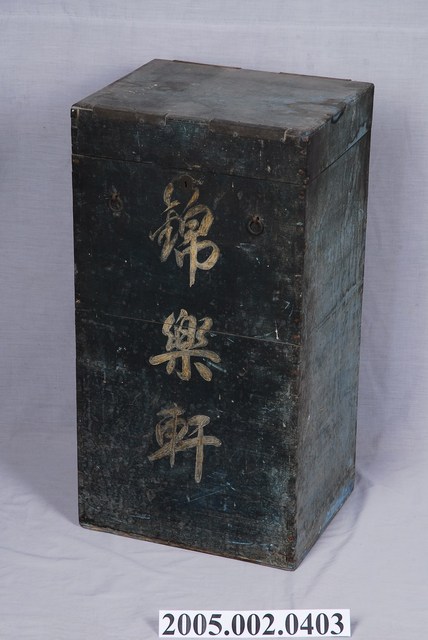 錦
樂
軒
2005.002.0403